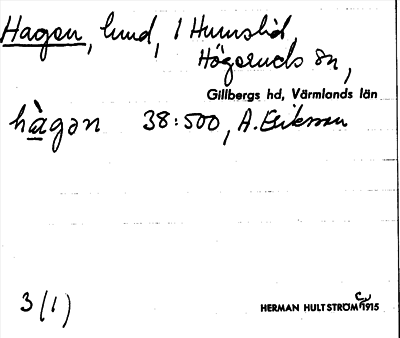 Hagen, lund, 1 Humslid,
Högeruds sn,
Gillbergs hd, Värmlands län
hàgən 38:500, A. Erikson
3 (1)
HERMAN HULTSTRÖM 1915